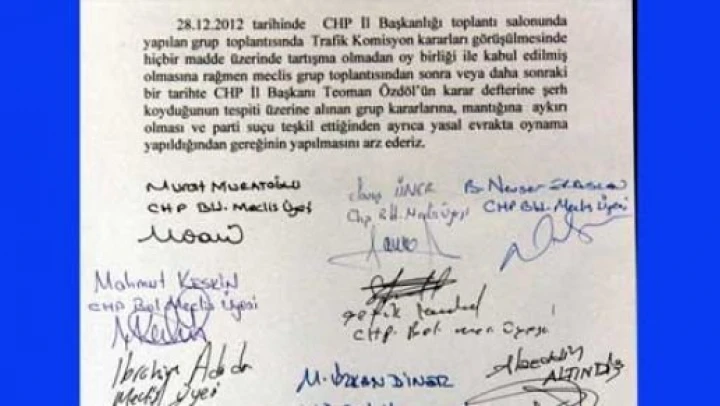 28.12.2012 tarihinde CHP İl Başkanlığı toplantı salonunda
yapılan grup toplantısında Trafik Komisyon kararları görüşülmesinde
hiçbir madde üzerinde tartışma olmadan oy birliği ile kabul edilmiş
olmasına rağmen meclis grup toplantısından sonra veya daha sonraki
bir tarihte CHP İl Başkanı Teoman Özdöl'ün karar defterine şerh
koyduğunun tespiti üzerine alınan grup kararlarına, mantığına aykırı
olması ve parti suçu teşkil ettiğinden ayrıca yasal evrakta oynama
yapıldığından gereğinin yapılmasını arz ederiz.
Murat MURATOĞLU
CHP Bld. Meclis Üyesi
ÜNER
Chp Bld. Meclis Üyesi
CHP Bld. Meclis Üyesi
Mahmut KESKİN
CHP Bel Meclis Üyesi
Şefik
CHP. Bel. Mec Üyesi
İbrahim
Meclis Üyesi
M. ÖZKAN DİNER
Alaeddin
ALTINDİŞ